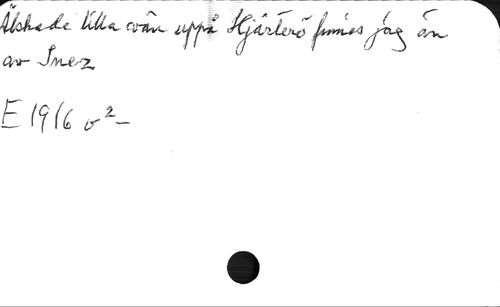 Älskade lilla vän uppå Hjärterö finnes jag än
av Inez
E 1916 v² –